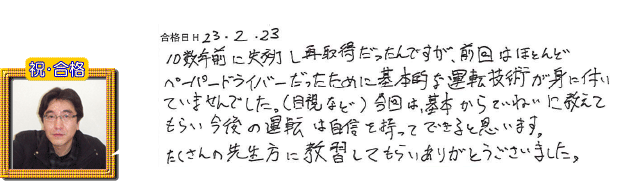 祝・合格
合格日 H 23・2・23
10数年前に失効し再取得だったんですが、前回はほとんど
ペーパードライバーだったために基本的な運転技術が身に付い
ていませんでした。(目視など) 今回は、基本からていねいに教えて
もらい今後の運転は自信を持ってできると思います。
たくさんの先生方に教習してもらいありがとうございました。